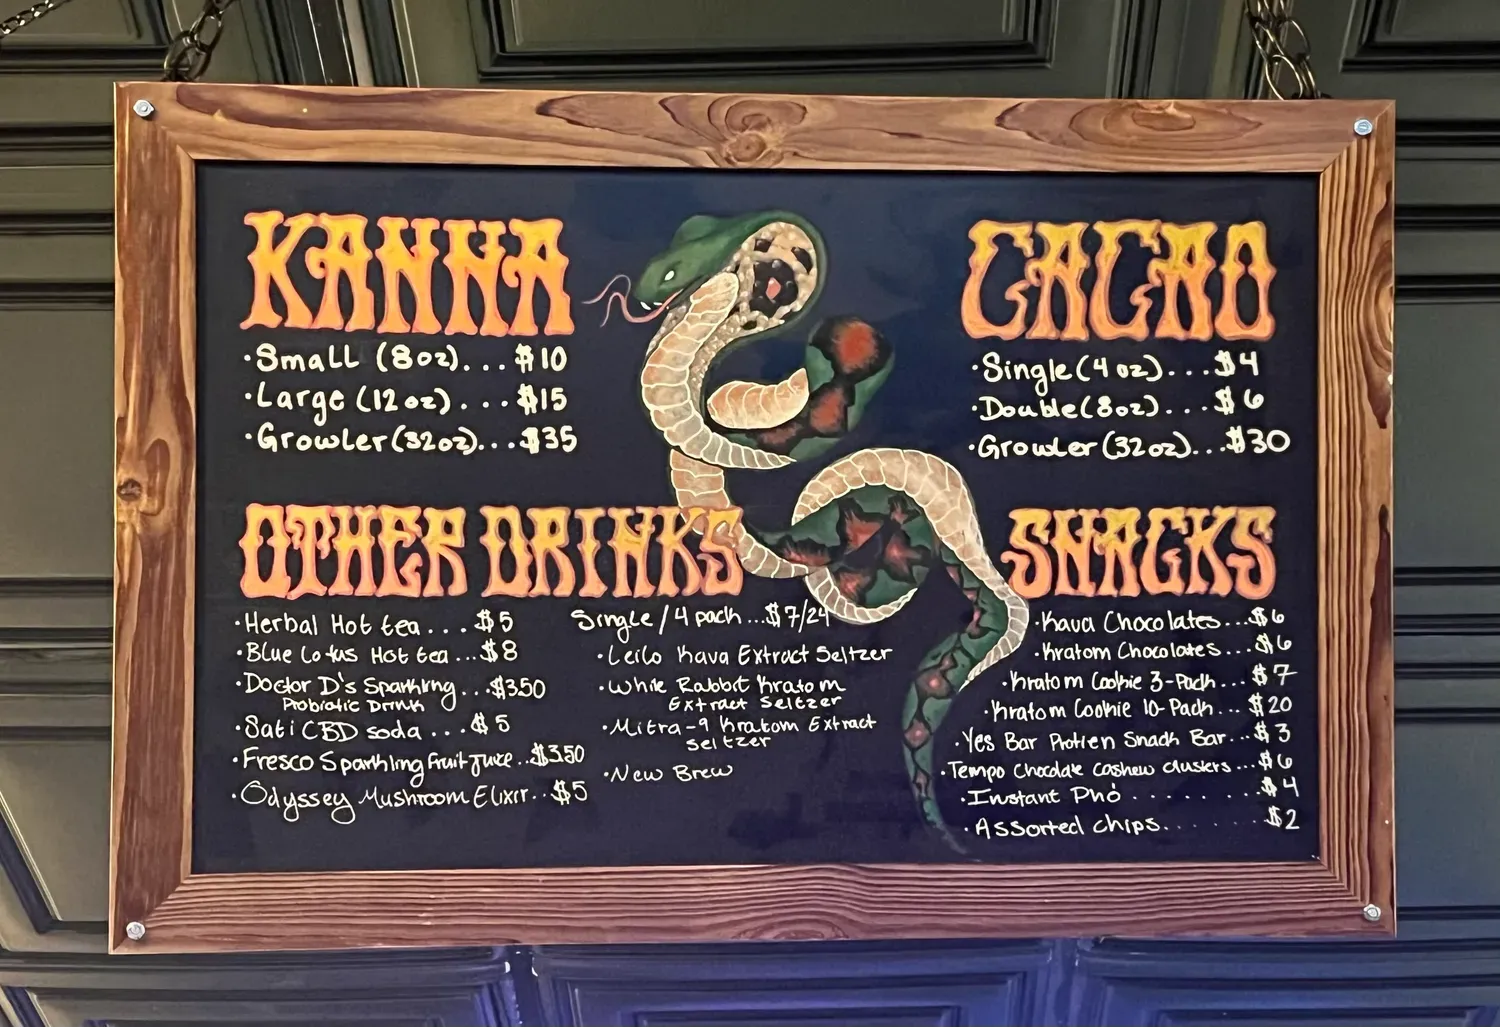 KANNA
·Small (8oz)...$10
·Large (12oz)...$15
·Growler (32oz)...$35
CACAO
·Single (4oz)...$4
·Double (8oz)...$6
·Growler (32oz)...$30
OTHER DRINKS
·Herbal Hot tea...$5
·Blue Lotus Hot tea...$8
·Doctor D's Sparkling...$350
Probiotic Drink
·Sati CBD soda...$5
·Fresco Sparkling Fruit Juice..$3.50
·Odyssey Mushroom Elixir..$5
Single/4 pack...$7/24
·Leilo Kava Extract Seltzer
·White Rabbit Kratom
Extract Seltzer
·Mitra-9 Kratom Extract
Seltzer
·New Brew
SNACKS
·Kava Chocolates...$6
·Kratom Chocolates...$6
·Kratom Cookie 3-Pack...$7
·Kratom Cookie 10-Pack...$20
·Yes Bar Protien Snack Bar...$3
·Tempo Chocolate Cashew clusters...$6
·Instant Phỏ.........$4
·Assorted chips......$2